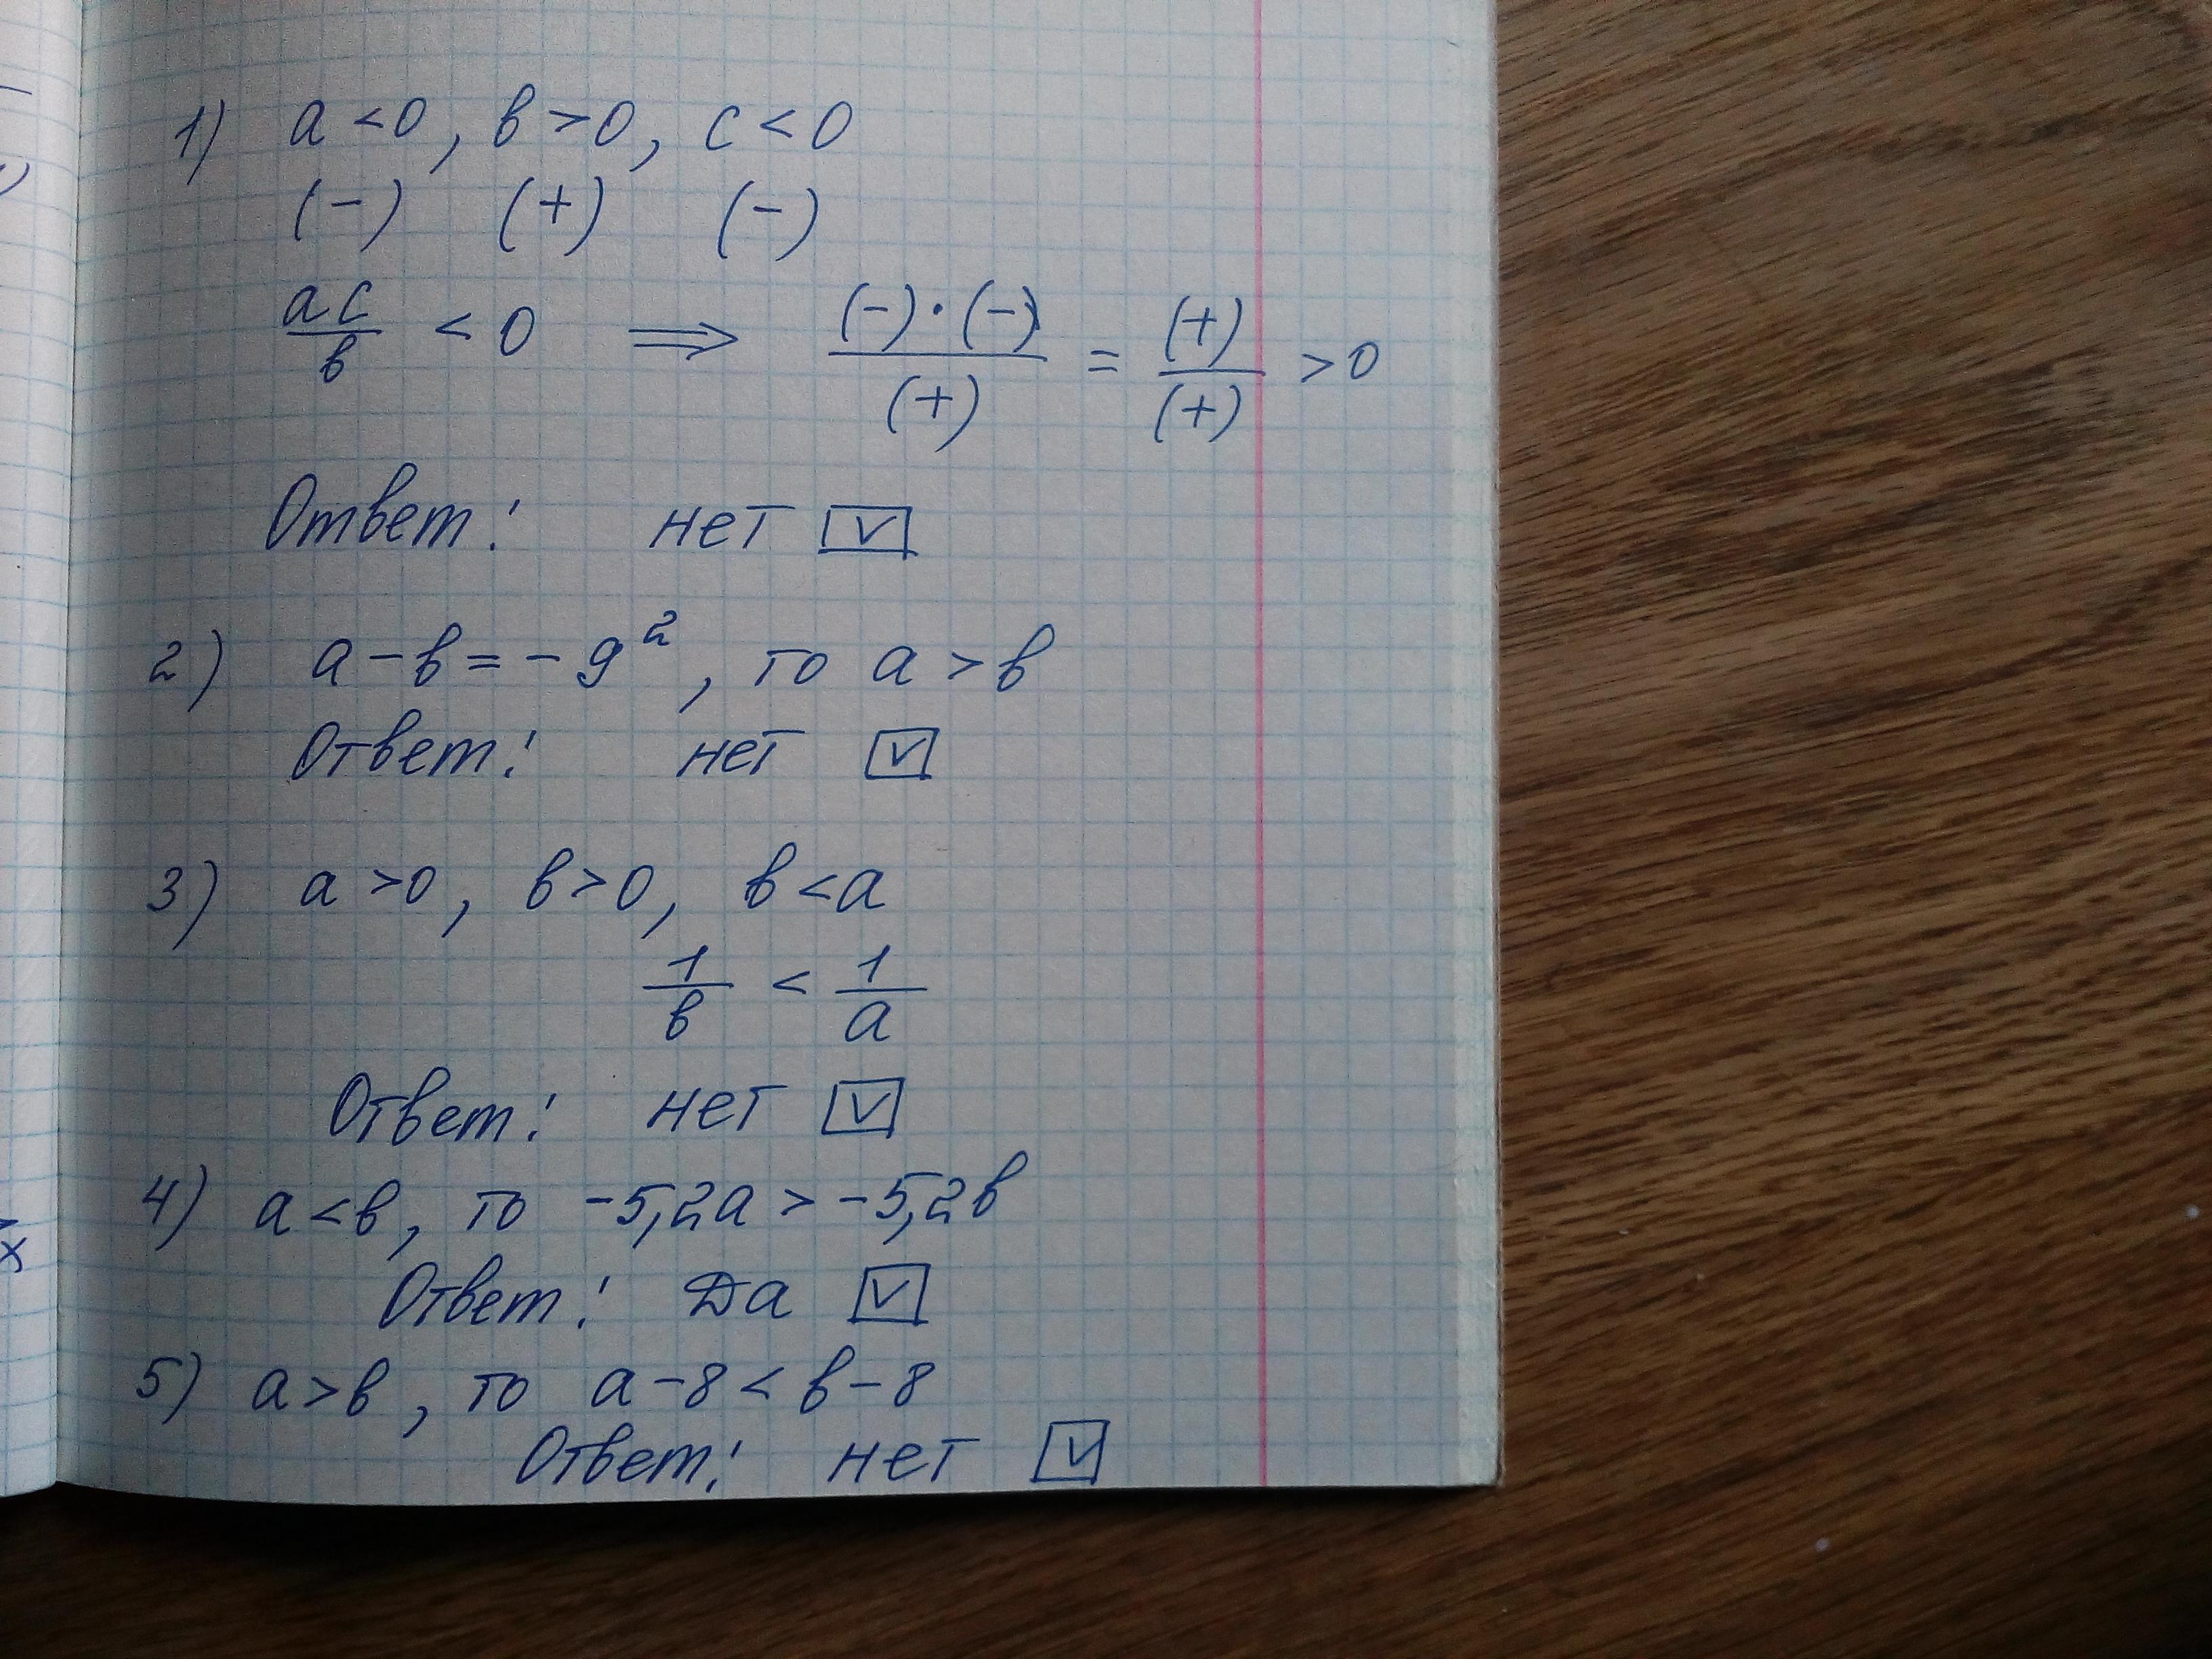 1) a < 0, в > 0, с < 0
(-) (+) (-)
ac/в < 0 ⟹ (-)·(-)/(+) = (+)/(+) > 0
Ответ: нет ☑
2) a - в = -9², то a > в
Ответ: нет ☑
3) a > 0, в > 0, в < a
1/в < 1/a
Ответ: нет ☑
4) a < в, то -5,2a > -5,2в
Ответ: Да ☑
5) a > в, то a - 8 < в - 8
Ответ: нет ☑